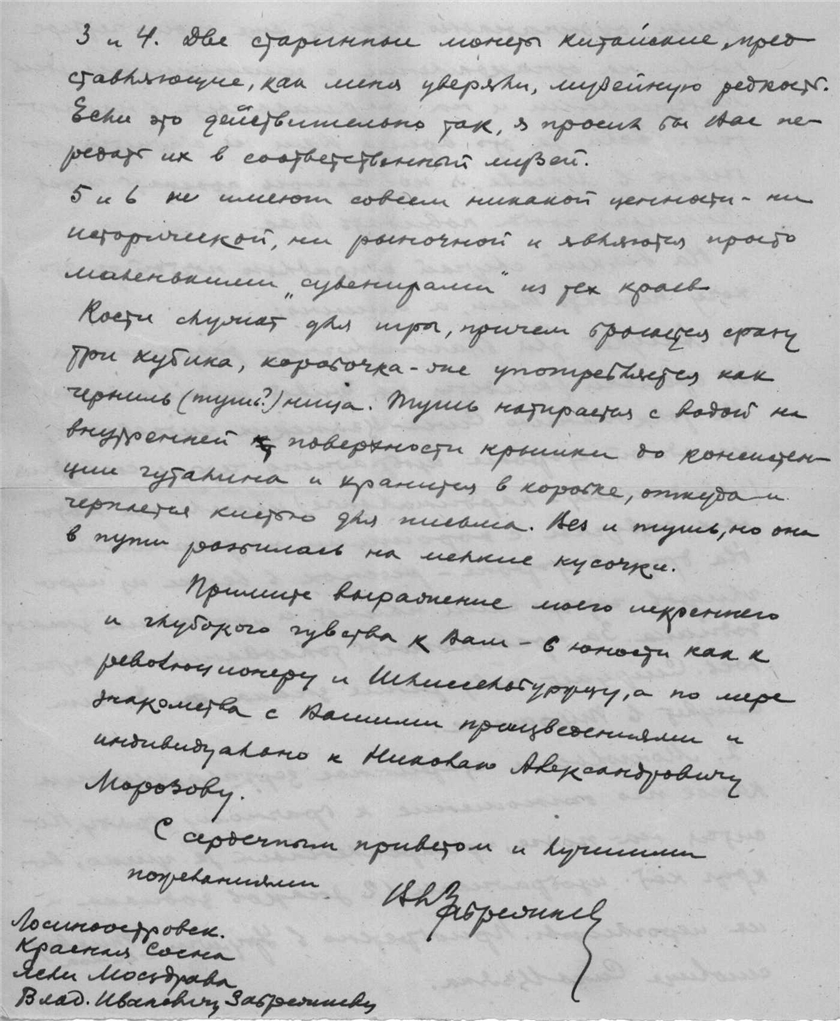 3 и 4. Две старинные монеты китайские, пред-
ставляющие, как меня уверяли, музейную редкость.
Если это действительно так, я просил бы Вас пе-
редать их в соответственный музей.
5 и 6 не имеют совсем никакой ценности - ни
исторической, ни рыночной и являются просто
маленькими „сувенирами" из тех краев
Кости служат для игры, причем бросается сразу
три кубика, коробочка-же употребляется как
черниль(тушь?)ница. Тушь натирается с водой на
внутренней поверхности крышки до консистен-
ции гуталина и хранится в коробке, откуда и
черпается кистью для письма. Вез и тушь, но она
в пути разбилась на мелкие кусочки.
Примите выражение моего искреннего
и глубокого чувства к Вам - в юности как к
революционеру и Шлиссельбуржцу, а по мере
знакомства с Вашими произведениями и
индивидуально к Николаю Александровичу
Морозову.
С сердечным приветом и лучшими
пожеланиями
Лосиноостровск.
Красная Сосна
Ясли Мосздрава
Влад. Иванович